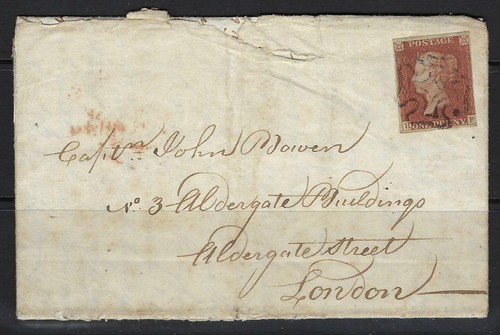 POSTAGE
ONE PENNY
Captn John Bowen
No 3 Aldergate Buildings
Aldergate Street
London